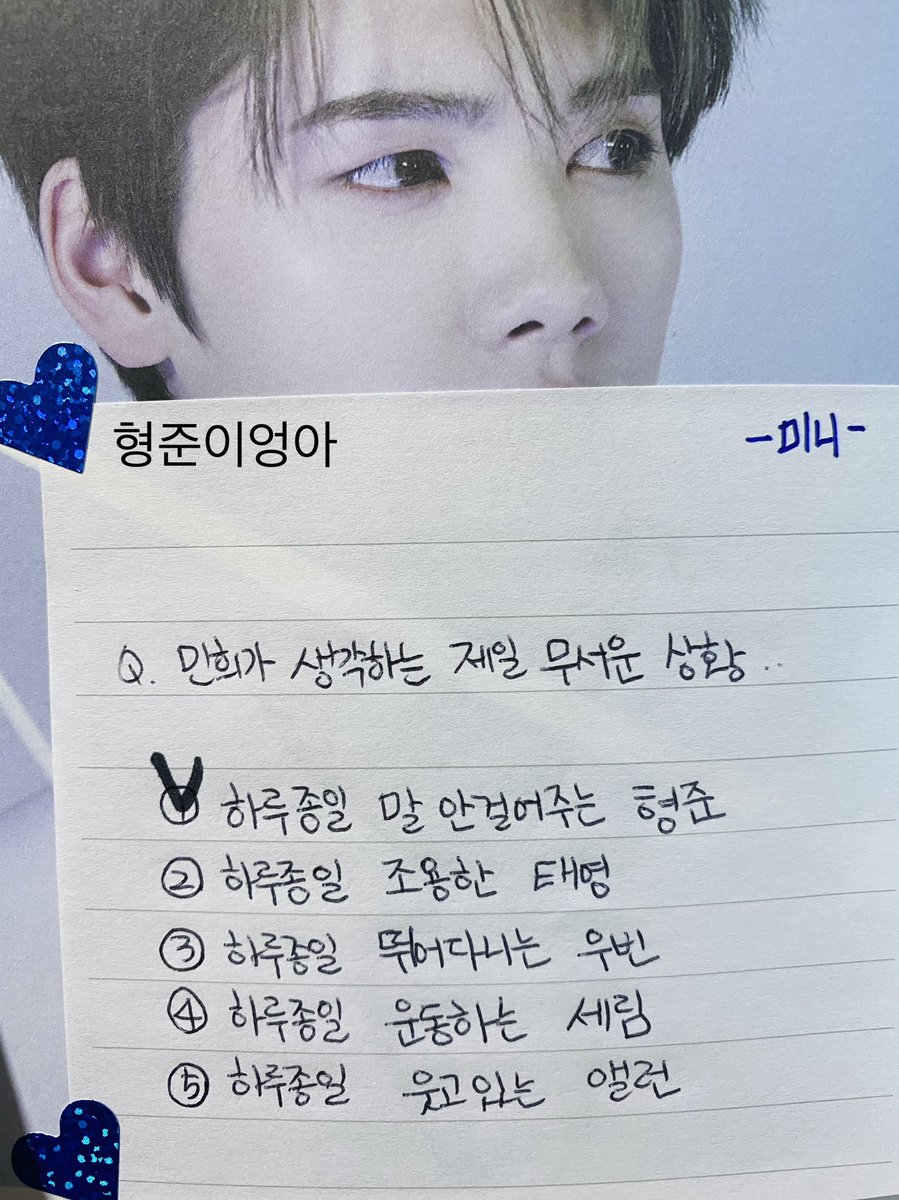 형준이엉아
-미니-
Q. 민희가 생각하는 제일 무서운 상황..
① 하루종일 말 안걸어주는 형준
② 하루종일 조용한 태영
③ 하루종일 뛰어다니는 우빈
④ 하루종일 운동하는 세림
⑤ 하루종일 웃고있는 앨런